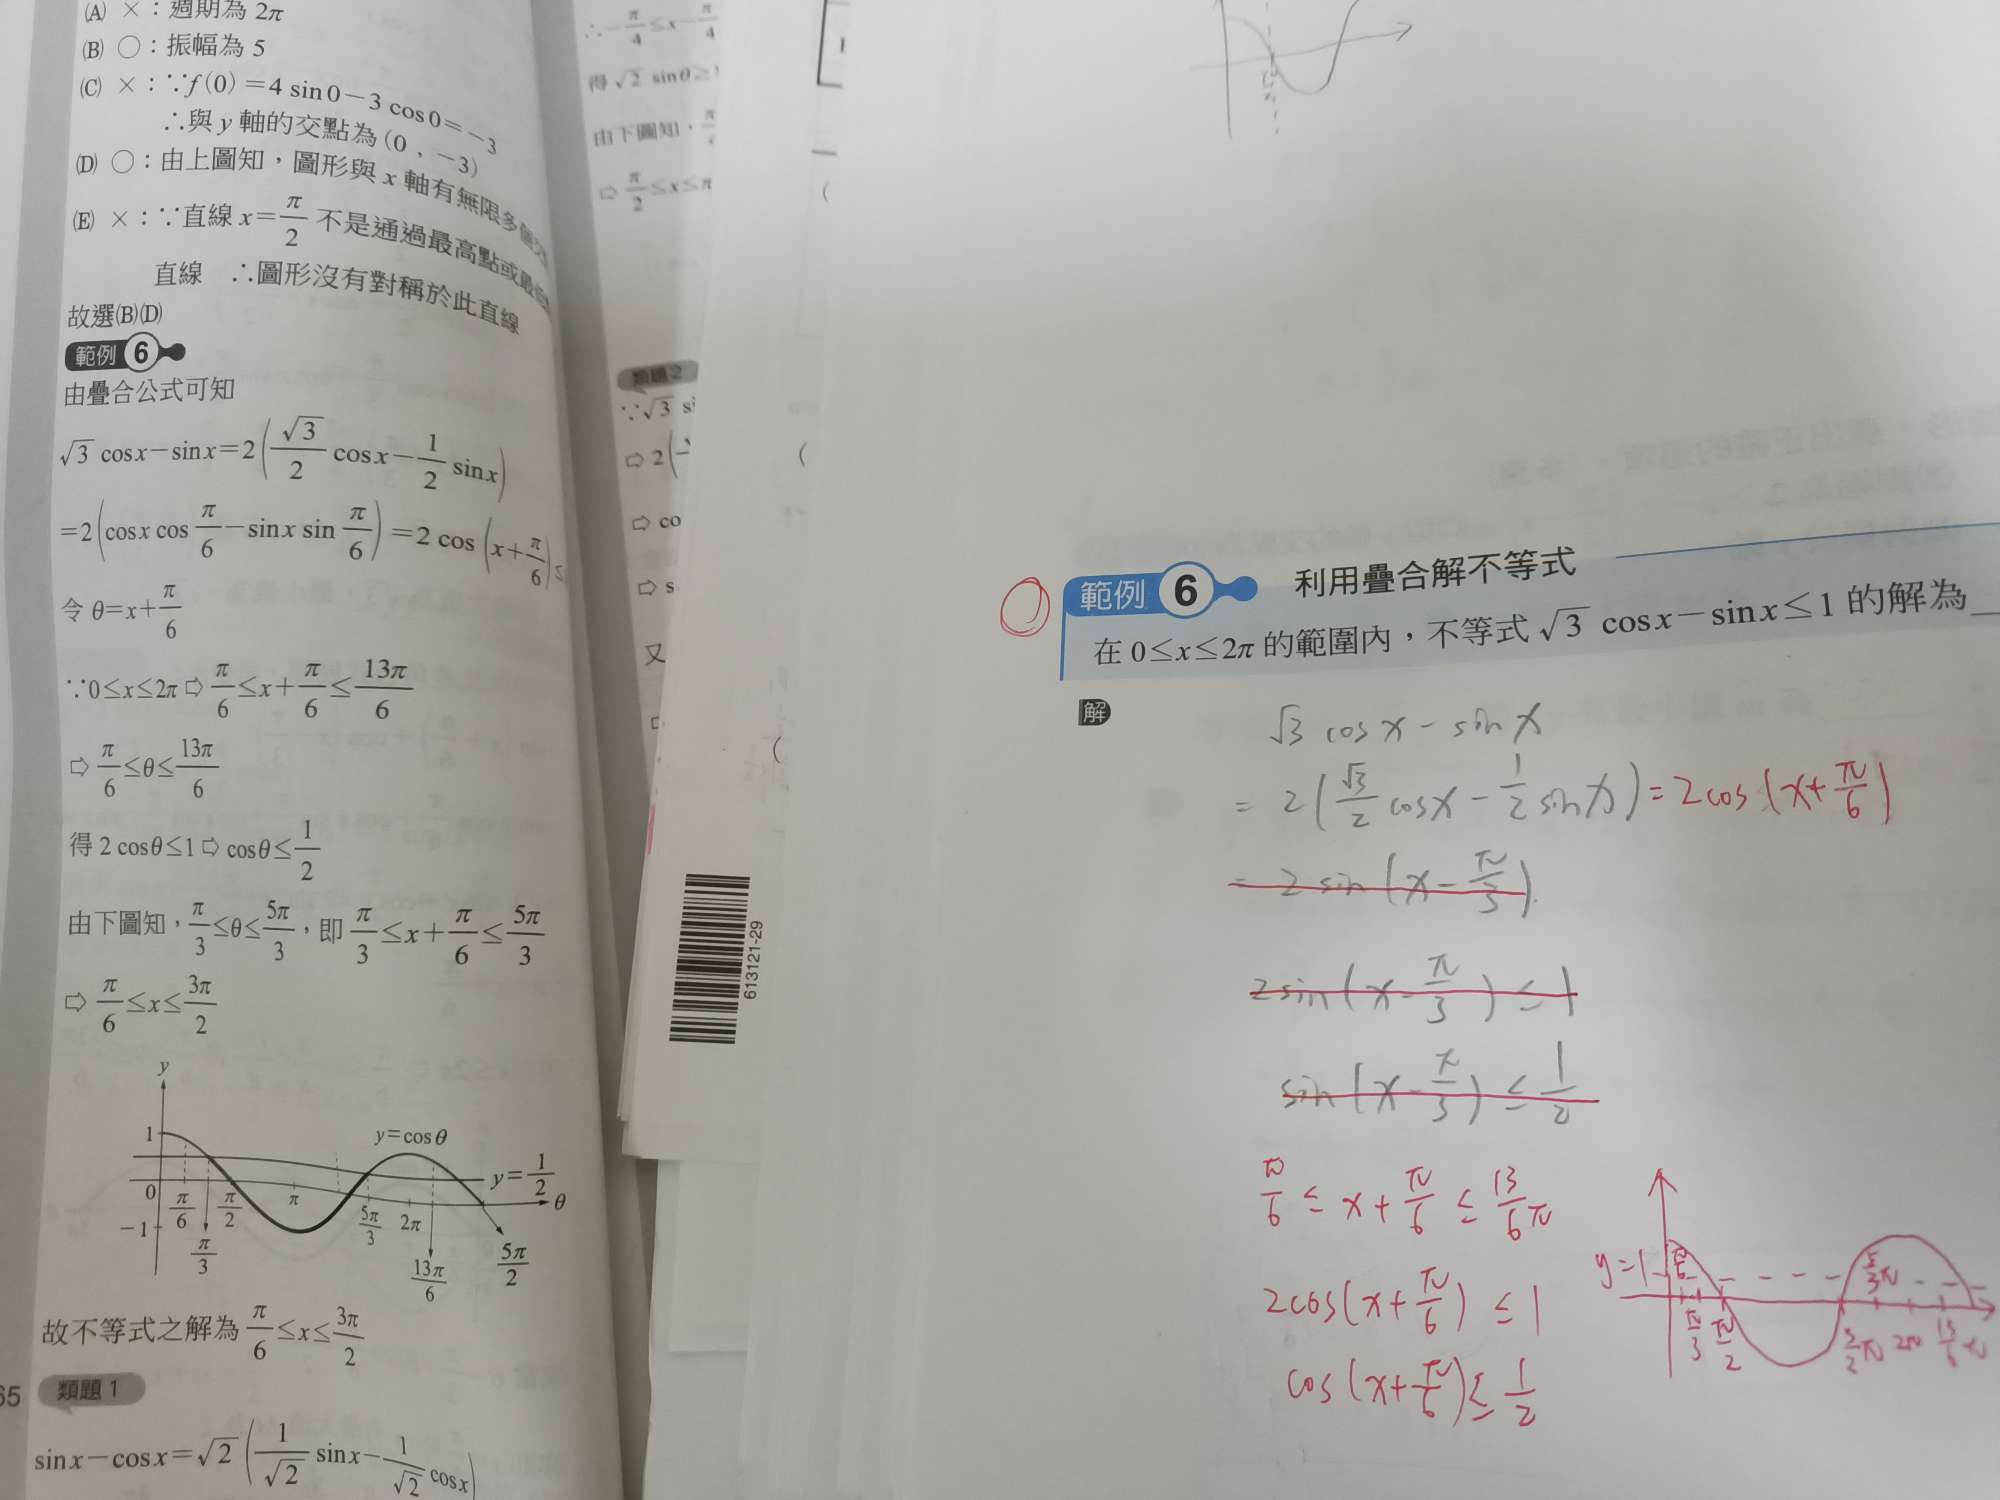 (A) ×：週期為 2π
(B) ○：振幅為 5
(C) ×：∵f(0)=4 sin0−3 cos0=−3
∴與 y 軸的交點為 (0，−3)
(D) ○：由上圖知，圖形與 x 軸有無限多個
(E) ×：∵直線 x=π/2 不是通過最高點或最
直線 ∴圖形沒有對稱於此直線
故選(B)(D)
範例 6
由疊合公式可知
√3 cosx−sinx=2(√3/2 cosx−1/2 sinx)
=2(cosx cos π/6−sinx sin π/6)=2 cos(x+π/6)≤
令 θ=x+π/6
∵0≤x≤2π⇨π/6≤x+π/6≤13π/6
⇨π/6≤θ≤13π/6
得 2 cosθ≤1⇨cosθ≤1/2
由下圖知，π/3≤θ≤5π/3，即 π/3≤x+π/6≤5π/3
⇨π/6≤x≤3π/2
y
1
y=cosθ
y=1/2
0
π/6
π/2
π
5π/3
2π
θ
−1
π/3
13π/6
5π/2
故不等式之解為 π/6≤x≤3π/2
65
類題 1
sinx−cosx=√2(1/√2 sinx−1/√2 cosx)
∴−π/4≤x−π/4
得 √2 sinθ≥
由下圖知，π
⇨π/2≤x≤π
類題 2
∵√3 si
⇨2(
⇨co
⇨s
又
613121-29
範例 6 利用疊合解不等式
在 0≤x≤2π 的範圍內，不等式 √3 cosx−sinx≤1 的解為
解
√3 cosx − sinx
= 2(√3/2 cosx − 1/2 sinx) = 2cos(x+π/6)
= 2 sin(x−π/3)
2sin(x−π/3) ≤ 1
sin(x−π/3) ≤ 1/2
π/6 ≤ x+π/6 ≤ 13/6 π
2cos(x+π/6) ≤ 1
cos(x+π/6) ≤ 1/2
y=1
π/6
5/3 π
π/3
π/2
3/2 π
2π
13/6 π